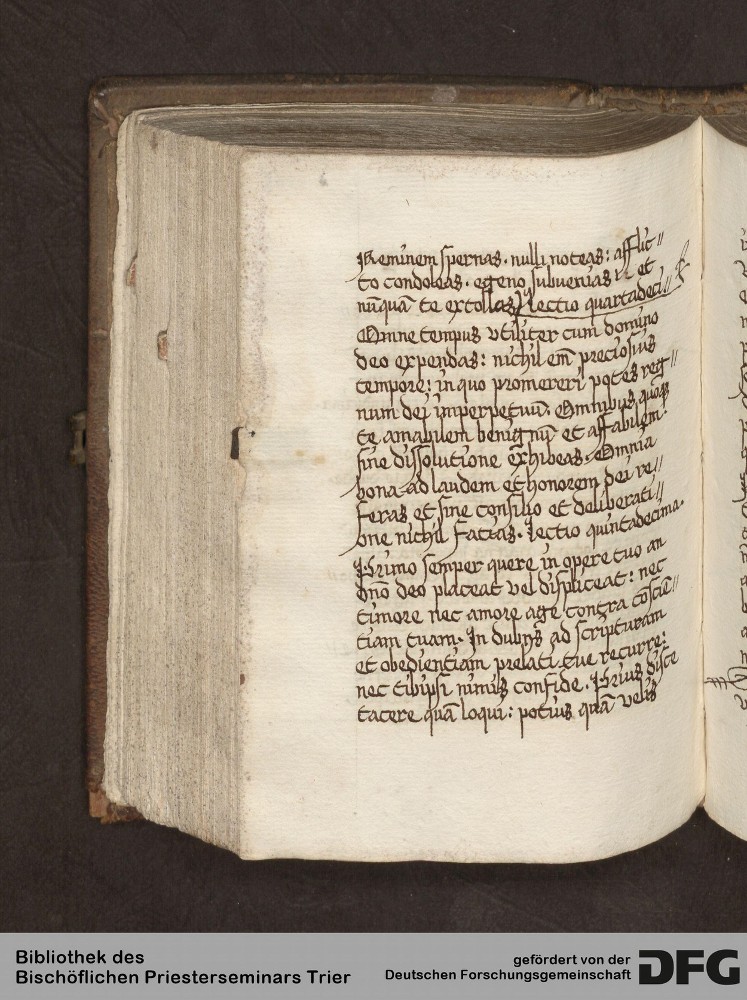 Neminem spernas. nulli noceas: afflic//
to condoleas. egeno subvenias et
nūquā te extollas lectio quartadeci//
Omne tempus vtiliter cum domino
deo expendas: nichil em̄ preciosius
tempore: in quo promereri potes reg//
num dei imperpetuum. Omnibus quoqȝ
te amabilem benignū et affabilem
sine dissolutione exhibeas. Omnia
bona ad laudem et honorem dei re//
feras et sine consilio et deliberati//
one nichil facias. lectio quintadecima.
Primo semper quere in opere tuo an
dn̄o deo placeat vel displiceat: nec
timore nec amore age contra cōsciē//
tiam tuam. In dubijs ad scripturam
et obedientiam prelati tue recurre:
nec tibiipsi nimis confide. Prius disce
tacere quā loqui: potius quā velis
Bibliothek des
Bischöflichen Priesterseminars Trier
gefördert von der
Deutschen Forschungsgemeinschaft
DFG